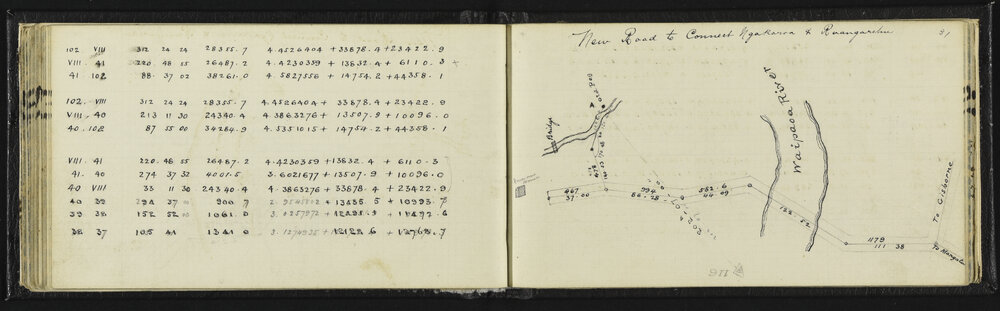 102 VIII 312 24 24 28355.7 4.4526404 + 33878.4 + 23422.9
VIII 41 220 48 55 26487.2 4.4230359 + 13832.4 + 6110.3 x
41 102 88 37 02 38261.0 4.5827556 + 14754.2 + 44358.1
102 VIII 312 24 24 28355.7 4.4526404 + 33878.4 + 23422.9
VIII 40 213 11 30 24340.4 4.3863276 + 13507.9 + 10096.0
40 102 87 55 00 34284.9 4.5351015 + 14754.2 + 44358.1
VIII 41 220 48 55 26487.2 4.4230359 + 13832.4 + 6110.3
41 40 274 37 32 4001.5 3.6021677 + 13507.9 + 10096.0
40 VIII 33 11 30 24340.4 4.3863276 + 33878.4 + 23422.9
40 39 294 37 00 900.7 + 13485.5 + 10993.7
39 38 152 52 00 1061.0 3.0257972
38 37 105 41 1341.0 3.1274935 + 12122.6 + 12768.7
New Road to Connect Ngakaroa & Ruangarehu
31
Waipaoa River
Bridge
Old Pa
A
467
37.00
994
86.25
582.6
44.09
122.52
1179
111 38
To Gisborne
116